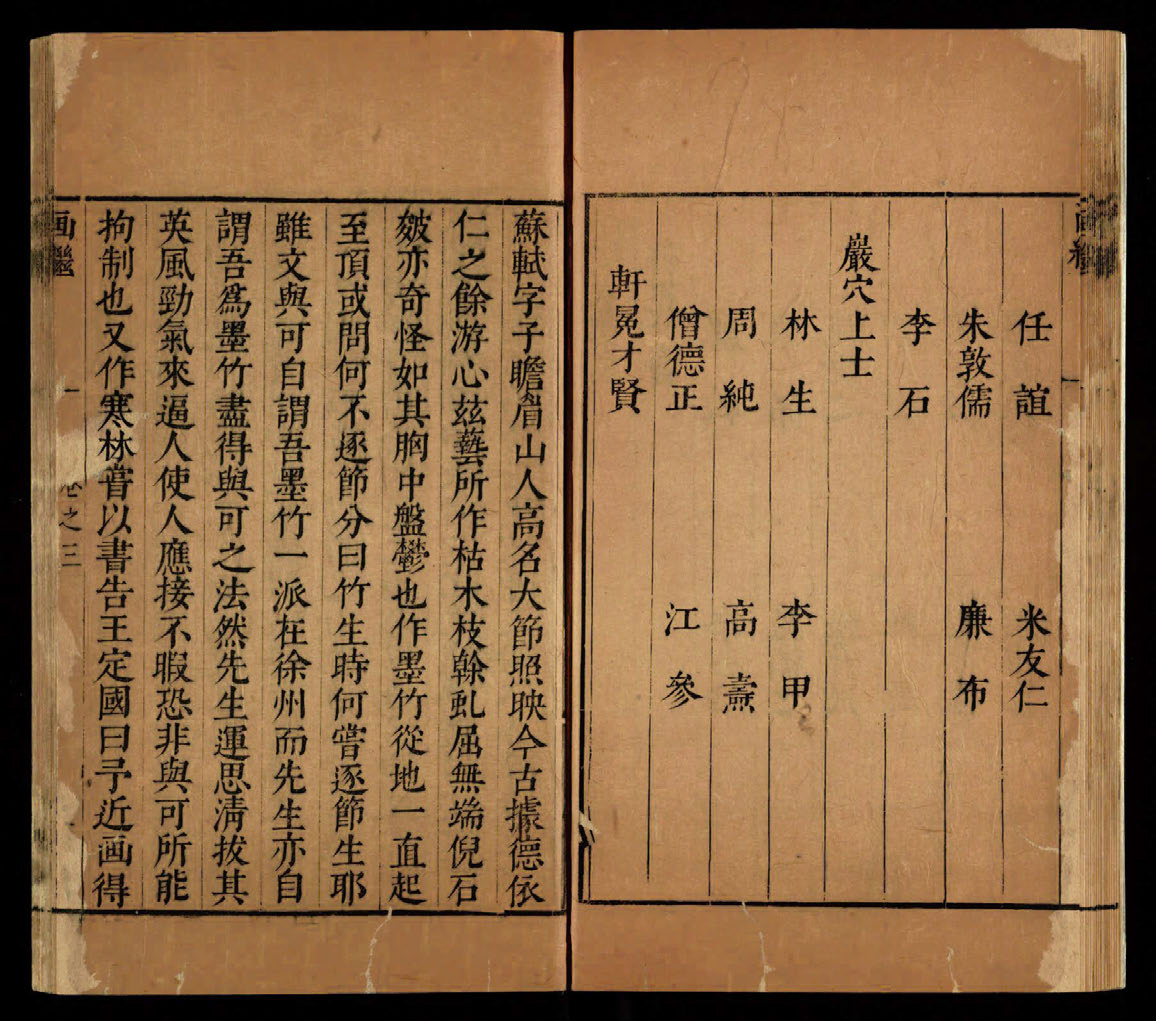 任誼 米友仁
朱敦儒 廉布
李石
巖穴上士
林生 李甲
周純 高燾
僧德正 江參
軒冕才賢
蘇軾字子瞻眉山人高名大節照映今古據德依
仁之餘游心兹藝所作枯木枝榦虬屈無端倪石
皴亦奇怪如其胸中盤鬱也作墨竹從地一直起
至頂或問何不逐節分曰竹生時何嘗逐節生耶
雖文與可自謂吾墨竹一派在徐州而先生亦自
謂吾爲墨竹盡得與可之法然先生運思淸拔其
英風勁氣來逼人使人應接不暇恐非與可所能
拘制也又作寒林嘗以書告王定國曰予近画得
画繼 卷之三